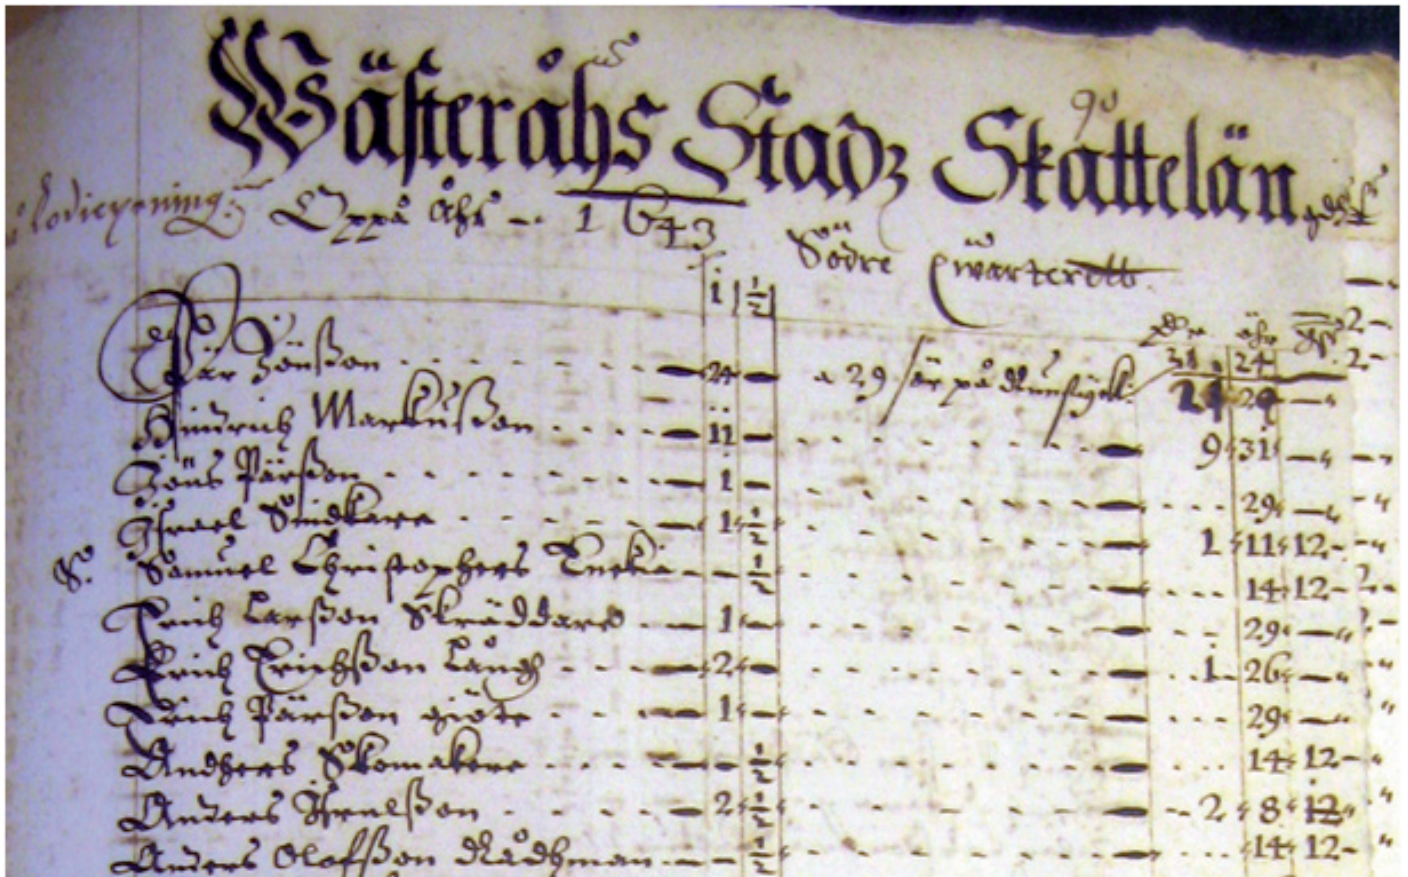 Wästeråhs Stadz Skattelän
Oppå Åhr 1643
Södre Qwarteret
1 ½
dr öhr
Pär Jönßon 24 — 29 är på 31 24
21 29
Hindrich Markußon ii — 9 31 —
Jöns Pärßon 1 — 29 —
Israel 1 ½ 1 11 12
S. Samuel Christophers ½ 14 12
Erich Larßon Skräddare 1 — 29 —
Erich Erichßon Lång 2 — 1 26 —
Erich Pärßon giöte 1 — 29 —
Andhers Skomakere — ½ 14 12
Anders Israelßon 2 ½ 2 8 12
Anders Olofßon Rådhman — ½ 14 12